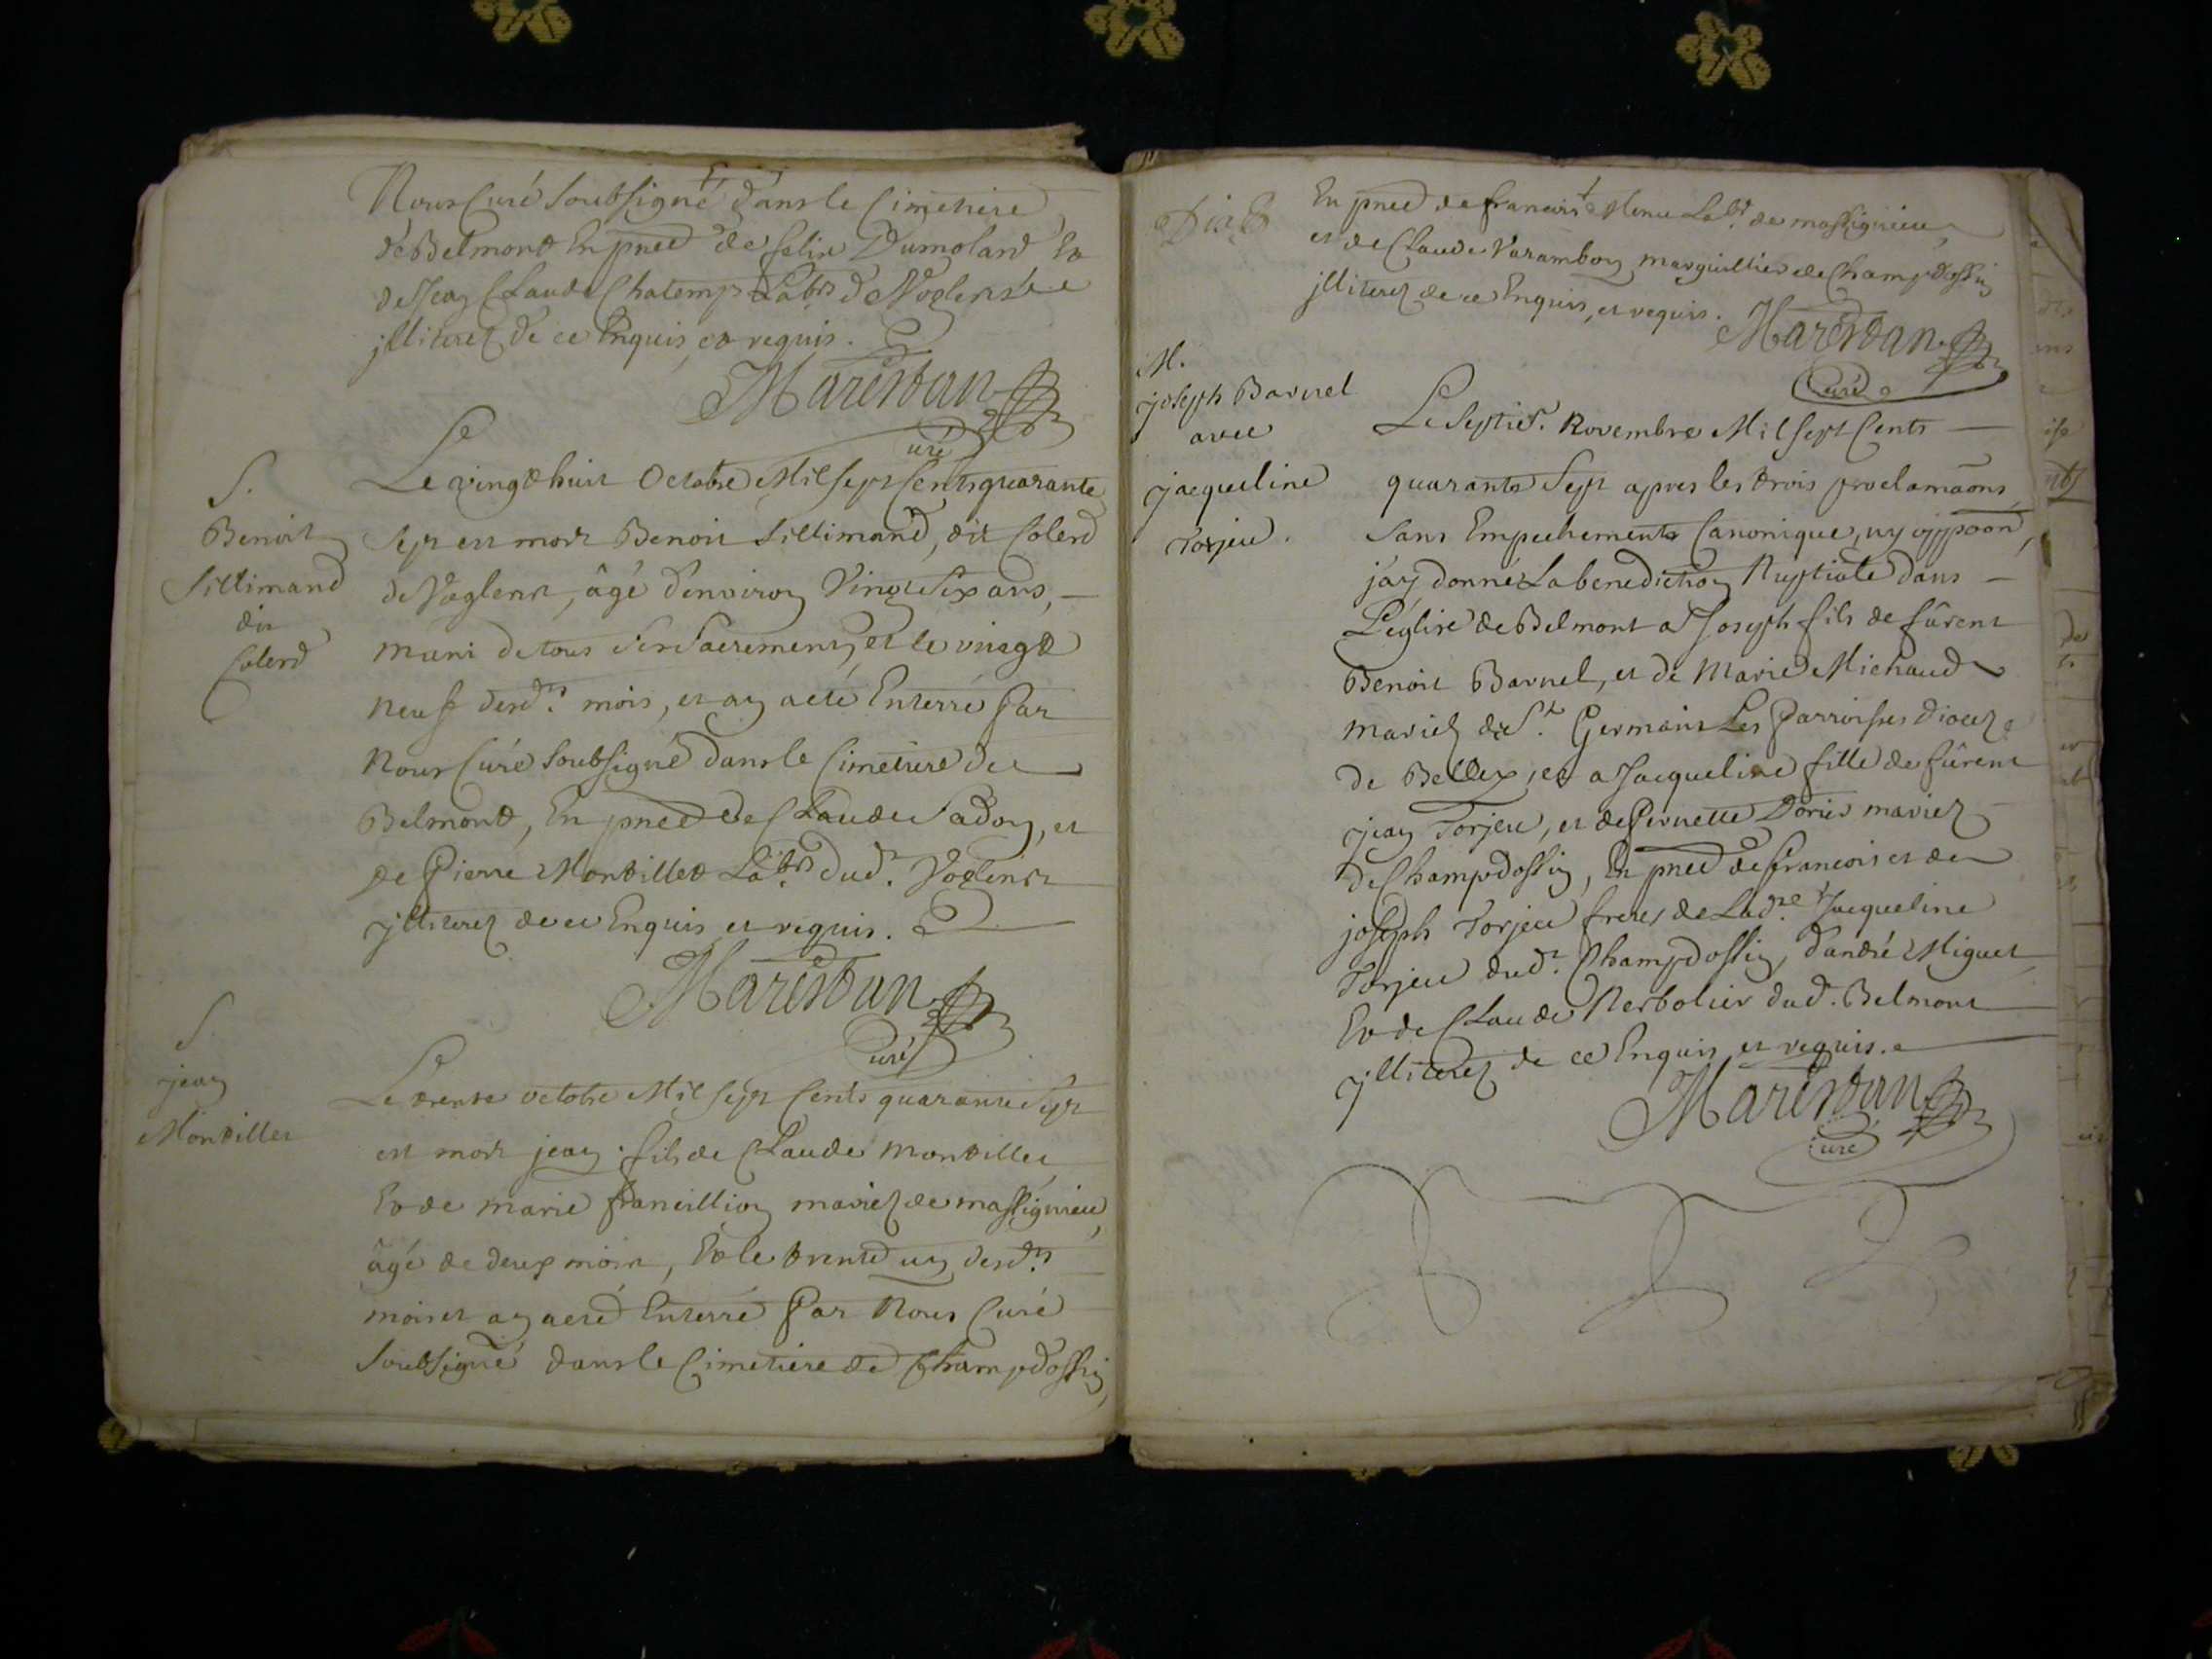 Nous Curé Soubsigné dans le Cimetiere
de Belmont En pnce de felix Dumolard Et
de Jean Claude Chatemps Labrs de Voglens
jlliterez de ce Enquis et requis.
Marestan
Curé
S.
Benoit
Sillimand
dit
Colerd
Le vingt huit Octobre Mil Sept Cents quarante
Sept est mort Benoit Sillimand, dit Colerd
de Voglens, âgé d'environ Vingt Six ans,
muni de tous Ses Sacrements, et le vingt
neuf desd. mois, et an a eté Enterré Par
Nous Curé Soubsigné dans le Cimetiere de
Belmont, En pnce de Claude Sadon, et
de Pierre Montillet Labrs dud. Voglens
jlliterez de ce Enquis et requis.
Marestan
Curé
S.
jean
Montillet
Le trente octobre Mil Sept Cents quarante Sept
est mort jean fils de Claude Montillet
Et de marie francillion mariez de massignieu,
âgé de deux mois, Et le trente un desd.
mois et an a eté Enterré Par Nous Curé
Soubsigné dans le Cimetiere de Champdossin,
En pnce de francois Labr. de massignieu,
et de Claude Varambon marguillier de Champdossin
jlliterez de ce Enquis, et requis.
Marestan
Curé
M.
joseph Barnel
avec
jacqueline
Torjeu.
Le Septie. Novembre Mil Sept Cents
quarante Sept apres les trois proclamaons
Sans Empechements Canonique, ny oppoon,
j'ay donné La benediction Nuptiale dans
L'eglise de Belmont a Joseph fils de fûrent
Benoit Barnel, et de Marie Michaud
mariez de St. Germain Les Parroisses diocez
de Belley, et a Jacqueline fille de fûrent
jean Torjeu, et de Pernette Dorier mariez
de Champdossin, En pnce de francois et de
joseph Torjeu freres de Lade. Jacqueline
Torjeu dud. Champdossin, d'andré Miguet
Et de Claude Nerbolier dud. Belmont
jlliterez de ce Enquis et requis.
Marestan
Curé